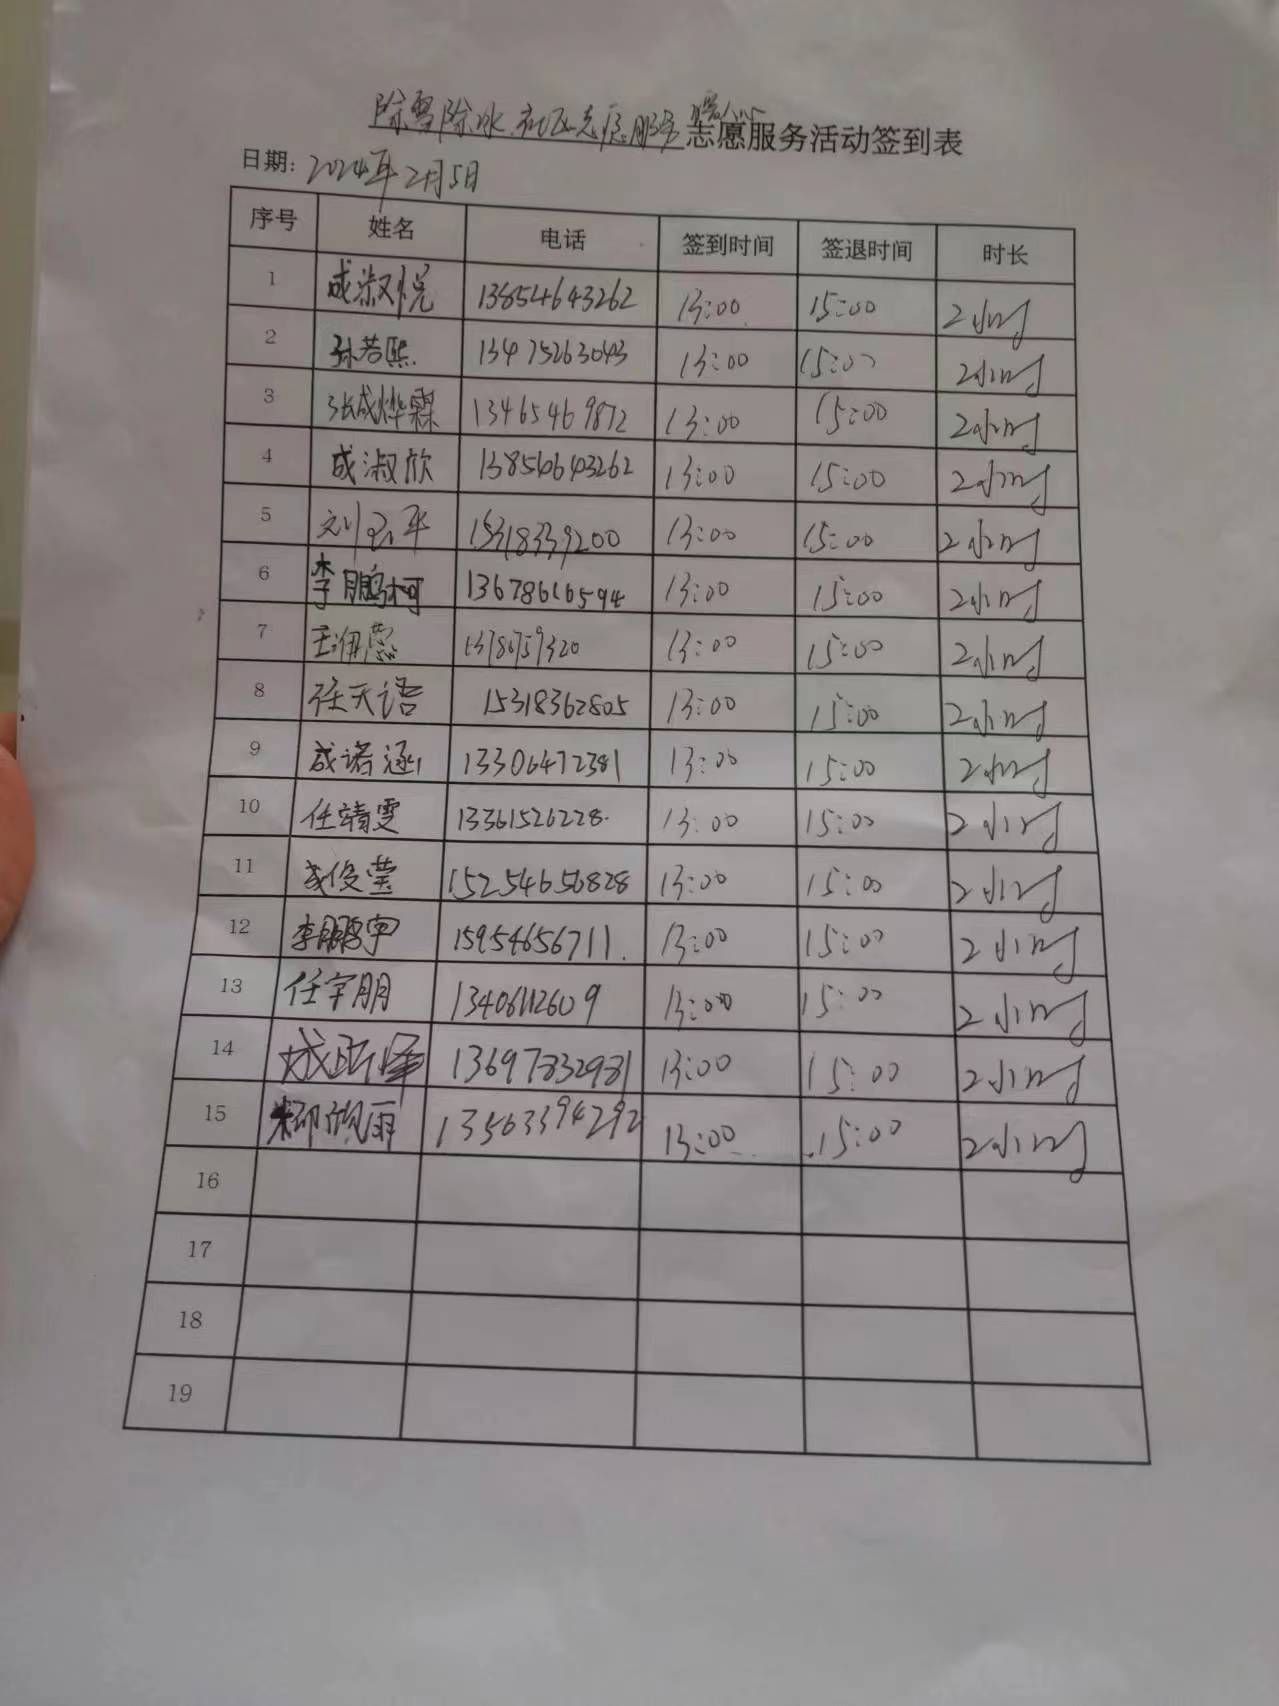 除雪除冰 社区志愿服务暖人心 志愿服务活动签到表
日期: 2024年2月5日
序号 姓名 电话 签到时间 签退时间 时长
1 成淑悦 13854643262 13:00 15:00 2小时
2 孙若熙 13475263043 13:00 15:00 2小时
3 张成烨霖 13465469872 13:00 15:00 2小时
4 成淑欣 13854643262 13:00 15:00 2小时
5 15318339200 13:00 15:00 2小时
6 李鹏柯 13678616594 13:00 15:00 2小时
7 13:00 15:00 2小时
8 任天语 15318362805 13:00 15:00 2小时
9 成诺涵 13306472381 13:00 15:00 2小时
10 任靖雯 13361526228 13:00 15:00 2小时
11 成俊莹 15254656828 13:00 15:00 2小时
12 李鹏宇 15954656711 13:00 15:00 2小时
13 任宇朋 13406112609 13:00 15:00 2小时
14 13697832981 13:00 15:00 2小时
15 13563394292 13:00 15:00 2小时
16
17
18
19